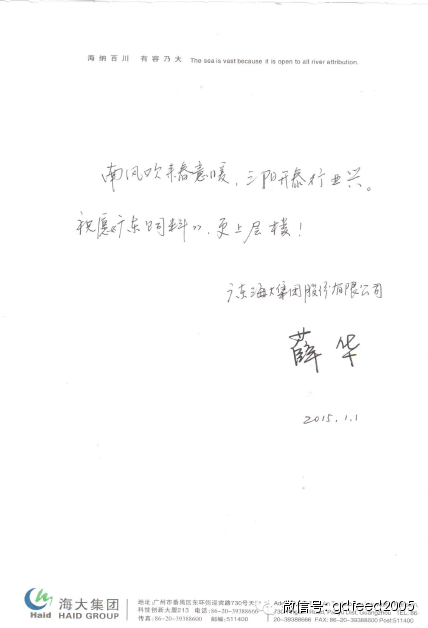 海纳百川 有容乃大 The sea is vast because it is open to all river attribution.
南风吹来春意暖，三阳开泰行业兴。
祝愿《广东饲料》，更上层楼！
广东海大集团股份有限公司
薛华
2015.1.1
海大集团
Haid HAID GROUP
地址:广州市番禺区东环街迎宾路730号天
科技创新大厦213 电话: 86-20-39388666
传真: 86-20-39388600 邮编: 511400
20-39388666 FAX: 86-20-39388600 Post:511400
微信号: gdfeed2005